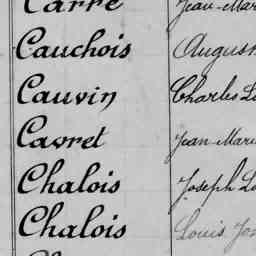 Carré Jean-Mar
Cauchois August
Cauvin Charles Lo
Cavret Jean Marie
Chalois Joseph Lo
Chalois Louis Jos